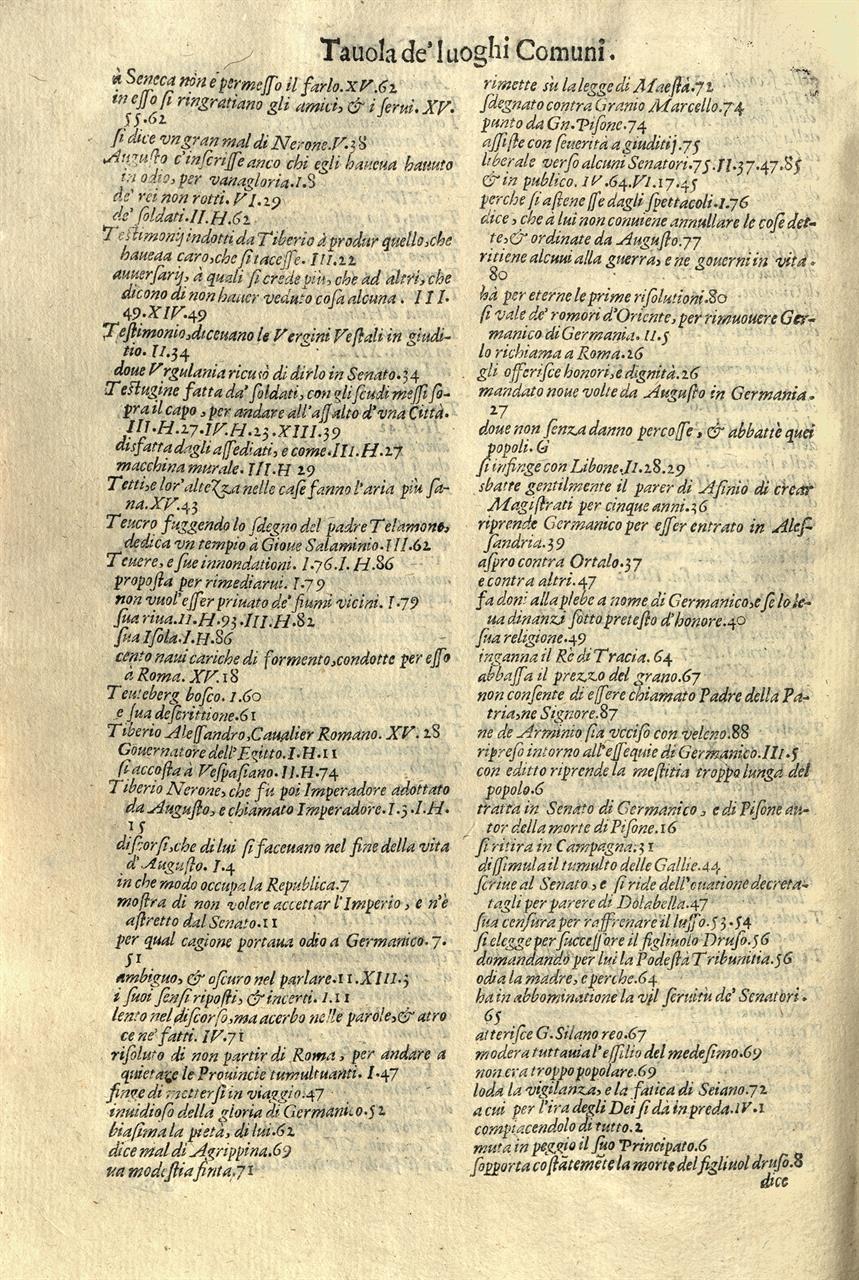 Tauola de' luoghi Comuni.
à Seneca non è permesso il farlo. XV. 62
in esso si ringratiano gli amici, & i serui. XV.
55.62
si dice vn gran mal di Nerone. V. 38
Augusto c'inscrisse anco chi egli haueua hauuto
in odio, per vanagloria. I. 8
de' rei non rotti. VI. 29
de' soldati. II. H. 62
Testimonij indotti da Tiberio à produr quello, che
haueaa caro, che si tacesse. III. 22
auuersarij, à quali si crede più, che ad altri, che
dicono di non hauer veduto cosa alcuna. III.
49. XIV. 49
Testimonio, diceuano le Vergini Vestali in giudi-
tio. II. 34
doue Vrgulania ricusò di dirlo in Senato. 34
Testugine fatta da' soldati, con gli scudi messi so-
pra il capo, per andare all'assalto d'vna Città.
III. H. 27. IV. H. 23. XIII. 39
disfatta dagli assediati, e come. III. H. 27
macchina murale. III. H 29
Tetti, e lor' altezza nelle case fanno l'aria più sa-
na. XV. 43
Teucro fuggendo lo sdegno del padre Telamone,
dedica vn tempio à Gioue Salaminio. III. 62
Teuere, e sue innondationi. I. 76. I. H. 86
proposta per rimediarui. I. 79
non vuol'esser priuato de' fiumi vicini. I. 79
sua riua. II. H. 93. III. H. 82
sua Isola. I. H. 86
cento naui cariche di formento, condotte per esso
à Roma. XV. 18
Teuteberg bosco. I. 60
e sua descrittione. 61
Tiberio Alessandro, Caualier Romano. XV. 28
Gouernatore dell'Egitto. I. H. 11
si accosta à Vespasiano. II. H. 74
Tiberio Nerone, che fu poi Imperadore adottato
da Augusto, e chiamato Imperadore. I. 3. I. H.
15
discorsi, che di lui si faceuano nel fine della vita
d'Augusto. I. 4
in che modo occupa la Republica. 7
mostra di non volere accettar l'Imperio, e n'è
astretto dal Senato. 11
per qual cagione portaua odio a Germanico. 7.
51
ambiguo, & oscuro nel parlare. 11. XIII. 3
i suoi sensi riposti, & incerti. I. 11
lento nel discorso, ma acerbo nelle parole, & atro
ce ne' fatti. IV. 71
risoluto di non partir di Roma, per andare a
quietare le Prouincie tumultuanti. I. 47
finge di mettersi in viaggio. 47
inuidioso della gloria di Germanico. 52
biasima la pietà, di lui. 62
dice mal di Agrippina. 69
va modestia finta. 71
rimette sù la legge di Maestà. 72
sdegnato contra Granio Marcello. 74
punto da Gn. Pisone. 74
assiste con seuerità a giuditij. 75
liberale verso alcuni Senatori. 75. II. 37. 47. 85
& in publico. IV. 64. VI. 17. 45
perche si astenesse dagli spettacoli. I. 76
dice, che à lui non conuiene annullare le cose det-
te, & ordinate da Augusto. 77
ritiene alcuni alla guerra, e ne gouerni in vita.
80
hà per eterne le prime risolutioni. 80
si vale de' romori d'Oriente, per rimuouere Ger-
manico di Germania. II. 5
lo richiama a Roma. 26
gli offerisce honori, e dignità. 26
mandato noue volte da Augusto in Germania.
27
doue non senza danno percosse, & abbattè quei
popoli. G
si infinge con Libone, II. 28. 29
sbatte gentilmente il parer di Asinio di crear
Magistrati per cinque anni. 36
riprende Germanico per esser entrato in Ales-
sandria. 39
aspro contra Ortalo. 37
e contra altri. 47
fa doni alla plebe a nome di Germanico, e se lo le-
ua dinanzi sotto pretesto d'honore. 40
sua religione. 49
inganna il Rè di Tracia. 64
abbassa il prezzo del grano. 67
non consente di essere chiamato Padre della Pa-
tria, ne Signore. 87
ne de Arminio sia vcciso con veleno. 88
ripreso intorno all'essequie di Germanico. III. 5
con editto riprende la mestitia troppo lunga del
popolo. 6
tratta in Senato di Germanico, e di Pisone au-
tor della morte di Pisone. 16
si ritira in Campagna. 31
dissimula il tumulto delle Gallie. 44
scriue al Senato, e si ride dell'ouatione decreta-
tagli per parere di Dolabella. 47
sua censura per raffrenare il lusso. 53. 54
si elegge per successore il figliuolo Druso. 56
domandando per lui la Podestà Tribunitia. 56
odia la madre, e perche. 64
ha in abbominatione la vil seruitù de' Senatori.
65
atterisce G. Silano reo. 67
modera tuttauia l'essilio del medesimo. 69
non era troppo popolare. 69
loda la vigilanza, e la fatica di Seiano. 72
a cui per l'ira degli Dei si dà in preda. IV. 1
compiacendolo di tutto. 2
muta in peggio il suo Principato. 6
sopporta costātemēte la morte del figliuol druso. 8
dice